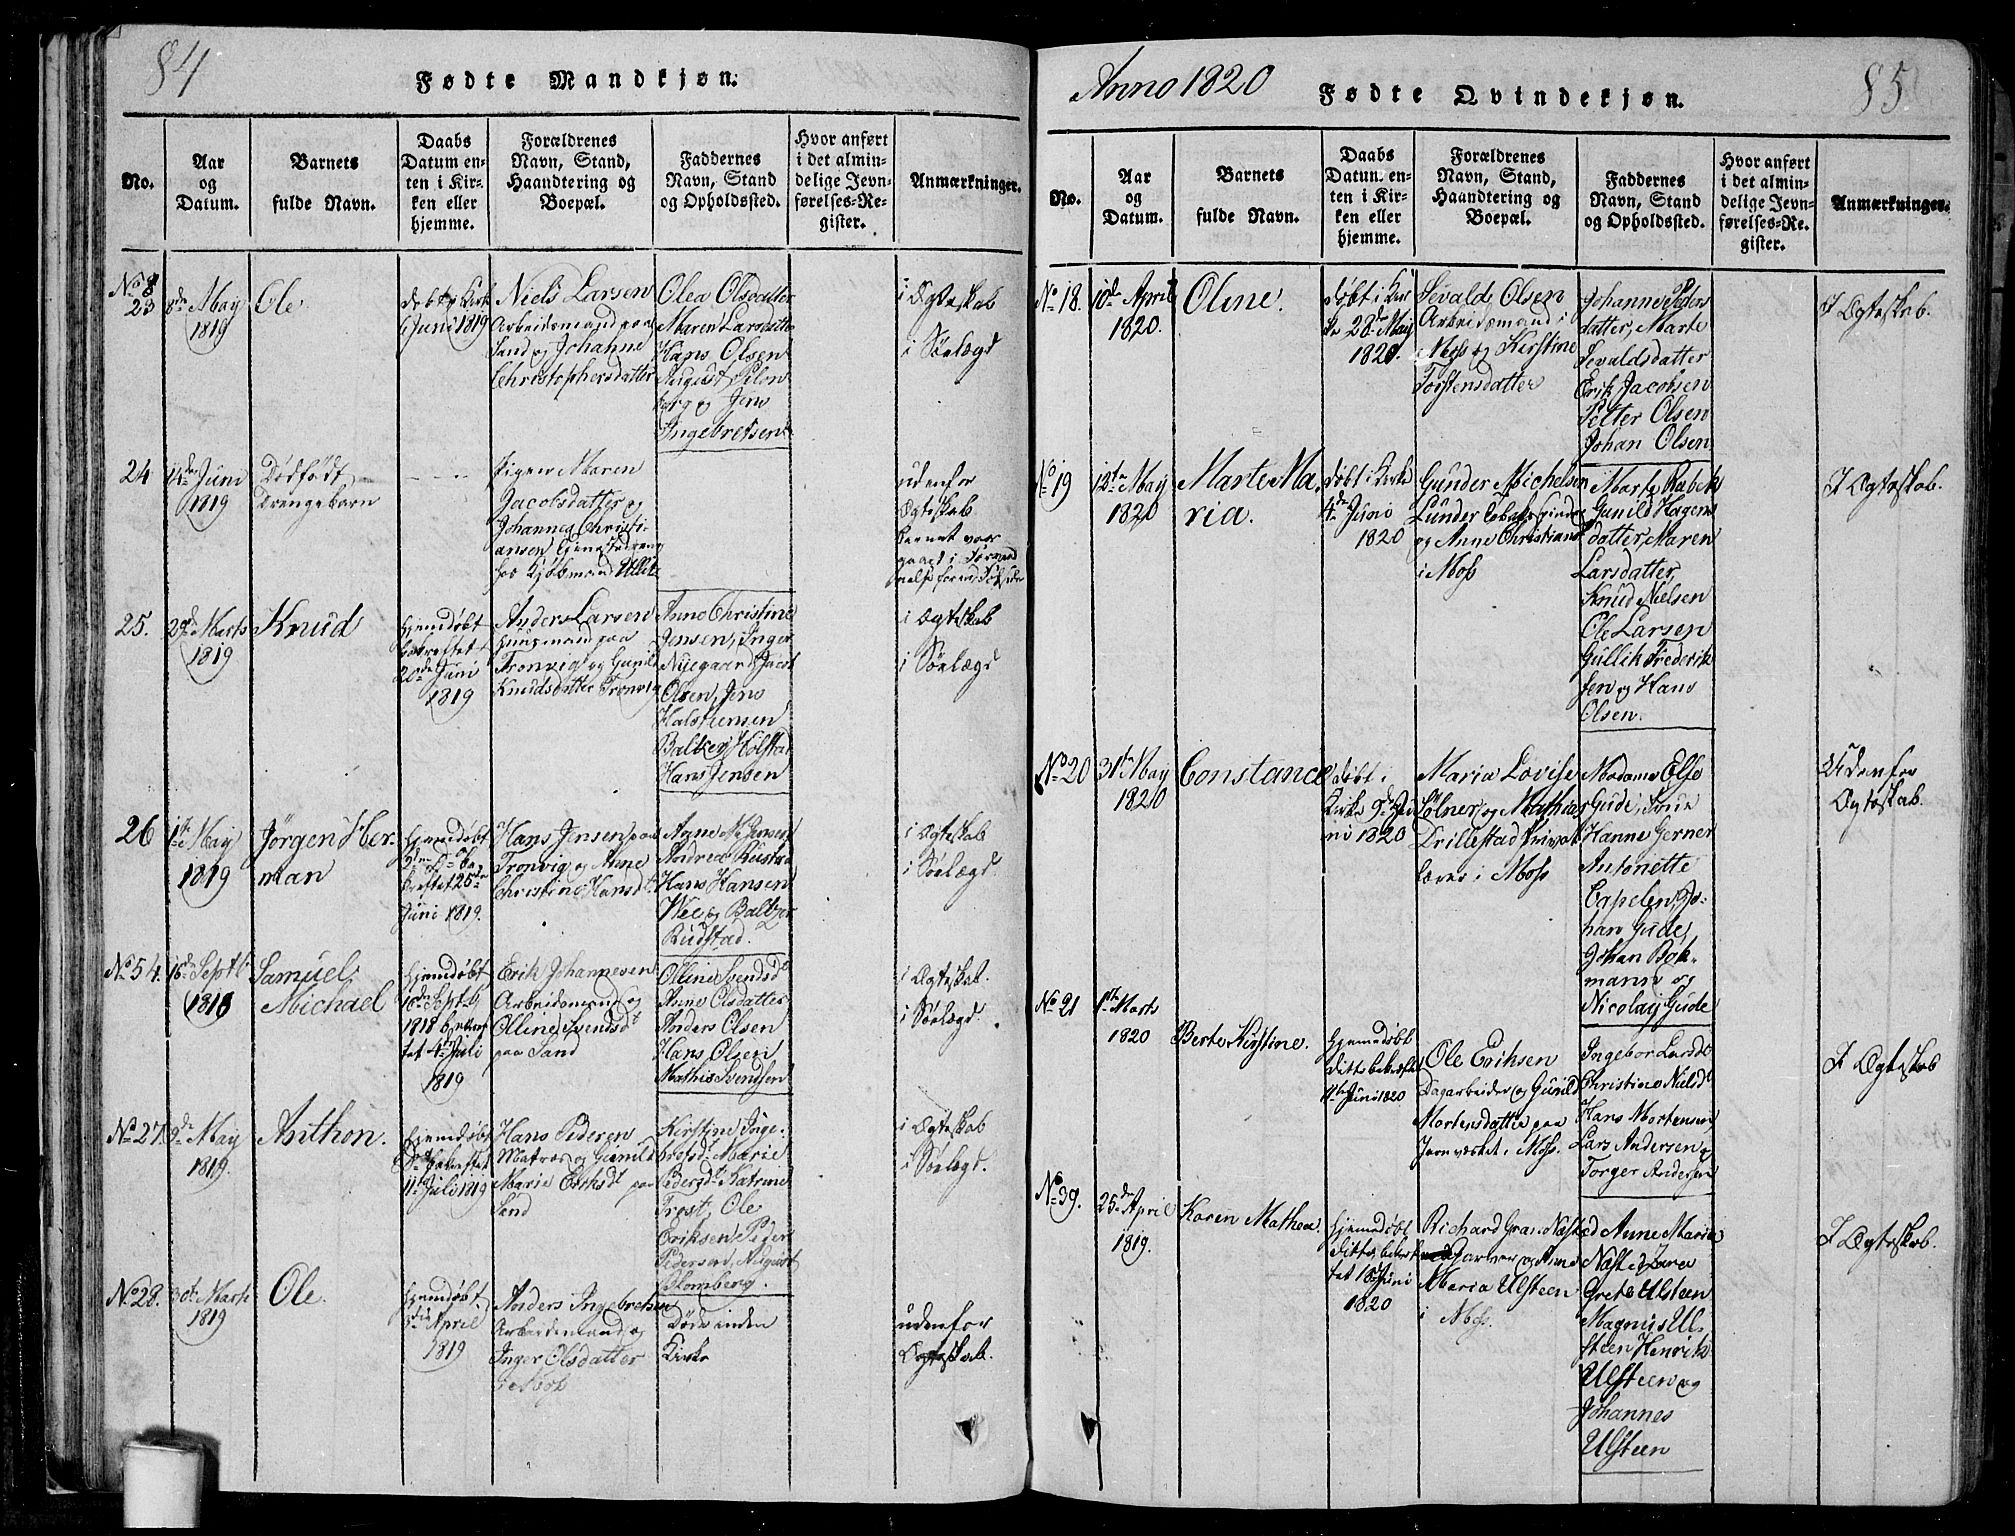 84
Fødte Mandkjøn.
No.
Aar
og
Datum.
Barnets
fulde Navn.
Daabs
Datum en-
ten i Kir-
ken eller
hjemme.
Forældrenes
Navn, Stand,
Haandtering og
Boepæl.
Faddernes
Navn, Stand
og Opholdssted.
Hvor anført
i det almin-
delige Jevn-
førelses-Re-
gister.
Anmærkninger.
23
8de May
1819
Ole
døbt i Kirk
6 Juni 1819
Niels Larsen
Arbeidsmand paa
Sand og Johanne
Christophersdatter
Olea Olsdatter
Maren Larsdatter
Hans Olsen
August
og Jens
Ingebretsen
i Ægteskab
i Sølægd
24
14de Juni
1819
Dødfødt
Drengebarn
Pigen Maren
Jacobsdatter og
Johannes Christi-
ansen
hos Kjøbmand
udenfor
Ægteskab
Barnet var
25.
29de Marts
1819
Knud
Hjemdøbt
bekræftet
20de Juni
1819
Anders Larsen
Huusmand paa
Tronvig og Gunild
Knudsdatter Tronvig
Anne Christine
Jensen, Inger
Nyegaard, Jacob
Olsen, Jens
Halstensen
Holstad
Hans Jensen
i Ægteskab
i Sølægd
26
1te May
1819
Jørgen Her-
man
Hjemdøbt
bekræftet 25de
Juni 1819.
Hans Jensen paa
Tronvig og Anne
Christine Hansd.
Anne M. Jensen
Andrea Rustad
Hans Hansen
Wee og Baltzer
Rudstad.
i Ægteskab
i Sølægd.
No 54.
16de Septb.
1818
Samuel
Michael
Hjemdøbt
18de Septb
1818 bekræf
tet 4de Juli
1819
Erik Johannesen
Arbeidsmand og
Olline Svendsdt
paa Sand
Olline Svendsd
Anne Olsdatter
Anders Olsen
Hans Olsen
Mathis Svendsen
i Ægteskab.
i Sølægd.
No 27.
9de May
1819.
Anthon.
Hjemdøbt
Do bekræftet
11te Juli 1819
Hans Pedersen
Matros og Gunild
Marie Eriksdt paa
Sand
Kirstine Inge-
bretsd. Marie
Pedersdt Katrine
Trost, Ole
Eriksen Peder
Pedersen, August
Blomberg.
i Ægteskab
i Sølægd.
No 28.
30te Marts
1819
Ole
Hjemdøbt
April
1819
Anders Ingebretsen
Arbeidsmand og
Inger Olsdatter
i Moss
Døde inden
Kirke
udenfor
Ægteskab.
Anno 1820
Fødte Qvindekjøn.
85
No.
Aar
og
Datum.
Barnets
fulde Navn.
Daabs
Datum en-
ten i Kir-
ken eller
hjemme.
Forældrenes
Navn, Stand,
Haandtering og
Boepæl.
Faddernes
Navn, Stand
og Opholdssted.
Hvor anført
i det almin-
delige Jevn-
førelses-Re-
gister.
Anmærkninger.
No 18.
10de April
1820.
Oline.
Døbt i Kir
ke 28de May
1820.
Sevald Olsen
Arbeidsmand i
Moss og Kirstine
Torstensdatter
Johanne Peders
datter, Marte
Sevaldsdatter
Erik Jacobsen
Petter Olsen
Johan Olsen
I Ægteskab.
No 19
12te May
1820
Marte Ma-
ria.
Døbt i Kirke
4de Juni
1820
Gunder Michelsen
Lunder Tobaksspinder
og Anne Christians
i Moss
Marte Rabek
Gunild Hagens
datter, Maren
Larsdatter,
Knud Nielsen
Ole Larsen
Gullik Frederik
sen og Hans
Olsen.
I Ægteskab.
No 20
31te May
1820
Constance
Døbt i
Kirke 9de Ju
ni 1820
Maria Lovise
Sølner, og Mathias
Drillestad Privat
lærer i Moss
Madame Else
Gude,
Hanne Gerner
Antonette
Capelen, Jo-
han Gude,
Johan Bok-
mann og
Nicolay Gude
Udenfor
Ægteskab.
No 21
1te Marts
1820
Berte Kirstine.
Hjemmedøbt
ditto bekræftet
11te Juni 1820
Ole Eriksen
Dagarbeider og Gunild
Mortensdatter paa
Jernværket i Moss.
Ingebor Larsd
Christine Nielsd
Hans Mortensen
Lars Andersen og
Torger Andersen
I Ægteskab
No 39.
25de April
1819.
Karen Mathea.
Hjemmedøbt
ditto bekræf
tet 18de Juni
1820
Richard Gran Næsted
Garver og Anne
Maria Ulsteen
i Moss.
Anne Maria
Næsted, Lara
Grete Ulsteen
Magnus Ul-
steen Henrik
Ulsteen og
Johannes
Ulsteen
I Ægteskab.